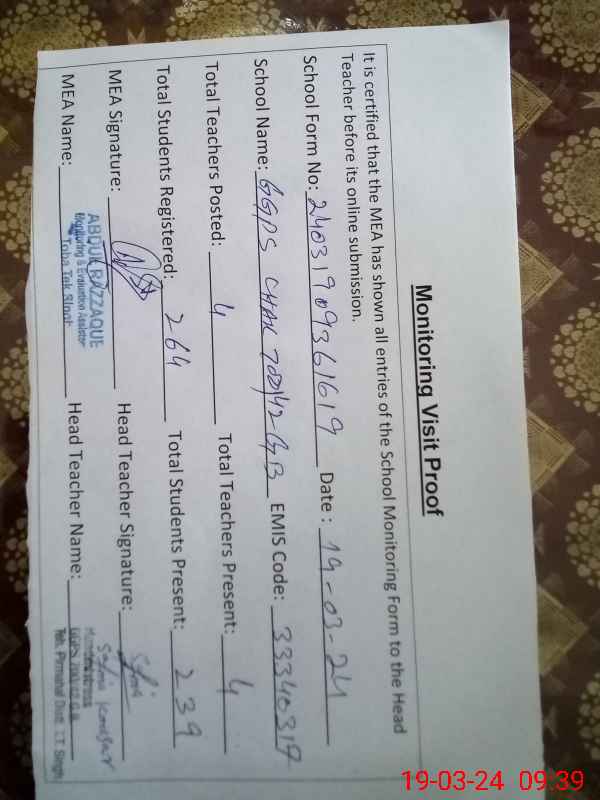 Monitoring Visit Proof
It is certified that the MEA has shown all entries of the School Monitoring Form to the Head
Teacher before its online submission.
School Form No: 24031909361619 Date : 19-03-24
School Name: GGPS CHAK 700/42-GB EMIS Code: 33340317
Total Teachers Posted: 4 Total Teachers Present: 4
Total Students Registered: 264 Total Students Present: 239
MEA Signature: Head Teacher Signature:
MEA Name: ABDUL RAZZAQUE Head Teacher Name:
Monitoring & Evaluation Assistant
Toba Tek Singh
Teh. Pirmahal Distt. T.T. Singh
19-03-24 09:39